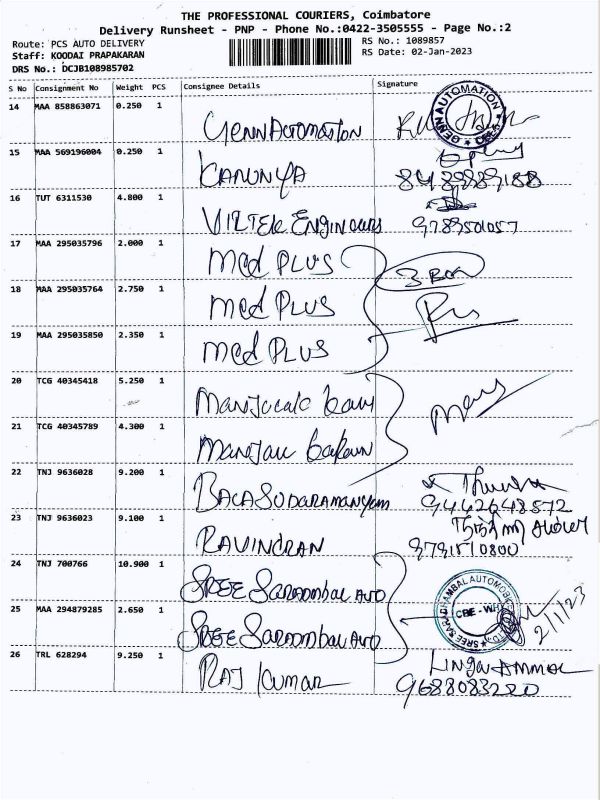 THE PROFESSIONAL COURIERS, Coimbatore
Delivery Runsheet - PNP - Phone No.:0422-3505555 - Page No.:2
Route: PCS AUTO DELIVERY
RS No.: 1089857
Staff: KOODAI PRAPAKARAN
RS Date: 02-Jan-2023
DRS No.: DCJB108985702
S No Consignment No Weight PCS Consignee Details Signature
14 MAA 858863071 0.250 1 GENN AUTOMATION
GENN AUTOMATION
15 MAA 569196004 0.250 1 KARUNYA
16 TUT 6311530 4.800 1 VIRTEK ENGINEERS
17 MAA 295035796 2.000 1 Med PLUS
3 Box
18 MAA 295035764 2.750 1 Med PLUS
19 MAA 295035850 2.350 1 Med PLUS
20 TCG 40345418 5.250 1
21 TCG 40345789 4.300 1
22 TNJ 9636028 9.200 1
9442648572
23 TNJ 9636023 9.100 1 RAVINDRAN
9791510800
24 TNJ 700766 10.900 1 SREE Saradmbal AUTO
SREE SARADHAMBAL AUTOMOBI
CBE - WH
2/1/23
25 MAA 294879285 2.650 1 SREE Saradmbal AUTO
26 TRL 628294 9.250 1 RAJ Kumar
LINGAAMMAL
9688083220